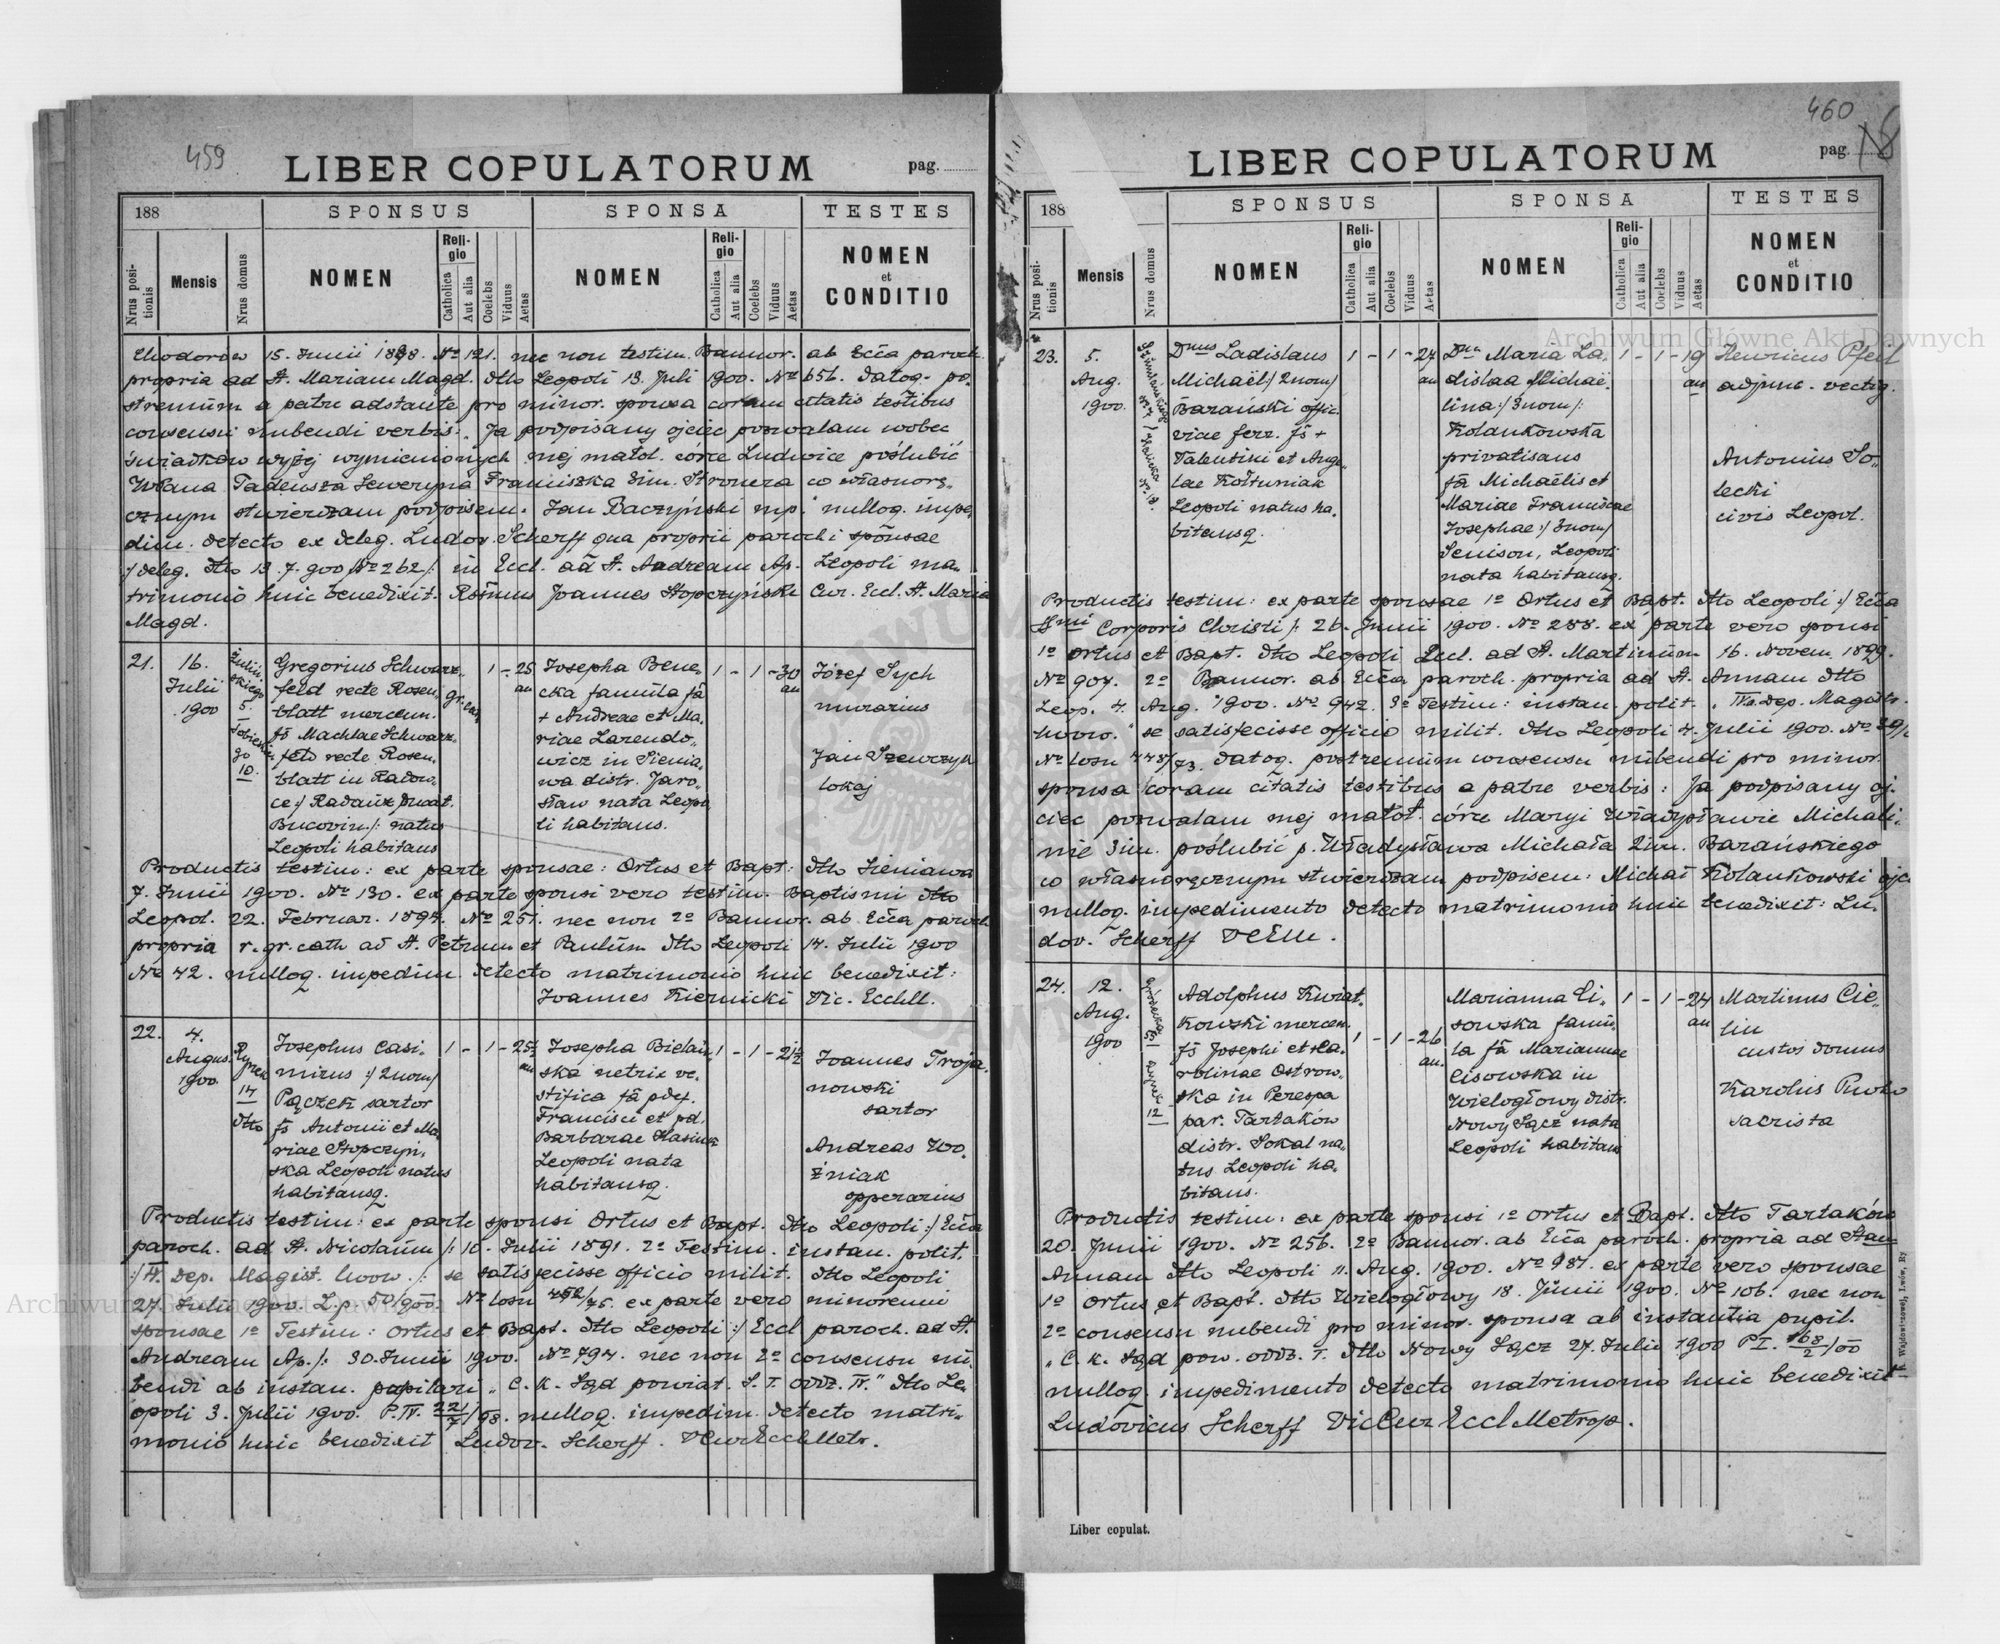 459
LIBER COPULATORUM
pag.
188
SPONSUS
SPONSA
TESTES
Nrus positionis
Mensis
Nrus domus
NOMEN
Religio
Catholica
Aut alia
Coelebs
Viduus
Aetas
NOMEN
Religio
Catholica
Aut alia
Coelebs
Viduus
Aetas
NOMEN
et
CONDITIO
Chodorów 15. Junii 1898. No 121. nec non testim. Bannor. ab Ecca paroch.
propria ad St. Mariam Magd. dtto Leopoli 13. Juli 1900. No 656. datoq. po-
stremum a patre adstante pro minor. sponsa coram citatis testibus
consensu nubendi verbis: „Ja podpisany ojciec pozwalam wobec
świadków wyżej wymienionych mej małol. córce Ludwice poślubić
WPana Tadeusza Seweryna Franciszka 3im. Stronera co własnorę-
cznym stwierdzam podpisem. Jan Baczyński mp." nulloq. impe-
dim. detecto ex deleg. Ludov. Scherff qua proprii parochi sponsae
/deleg. dtto 13. 7. 900 No 262/: in Eccl. ad St. Andream Ap. Leopoli ma-
trimonio huic benedixit. Rssmus Joannes Stopczyński Cur. Eccl. St. Maria
Magd.
21.
16.
Julii
1900
5.
10.
Gregorius Schwarz-
feld recte Rosen-
blatt mercem.
fs Machlae Schwarz-
feld recte Rosen-
blatt in Radow-
ce:/ Radautz ducat.
Bucovin./: natus
Leopoli habitans
gr. cat.
1 - 25
an
Josepha Bene-
cka famula fa
+ Andreae et Ma-
riae Larendo-
wicz in Sienia-
wa distr. Jaro-
sław nata Leopo-
li habitans.
1 - 1 - 30
an
Józef Sych
murarius
Jan Szewczyk
lokaj
Productis testim: ex parte sponsae: Ortus et Bapt: dtto Sieniawa
7. Junii 1900. No 130. ex parte sponsi vero testim. Baptismi dtto
Leopol. 22. Februar. 1894. No 251. nec non 2o Bannor. ab Ecca paroch
propria r. gr. cath ad St. Petrum et Paulum dtto Leopoli 14. Julii 1900
No 42. nulloq. impedim. detecto matrimonio huic benedixit:
Joannes Kiernicki Vic. Eccll.
22.
4.
Augus.
1900
Rynek
14
dtto
Josephus Casi-
mirus :/ 2nom/
Pączek sartor
fs Antonii et Ma-
riae Stopczyń-
ska Leopoli natus
habitansq.
1 - 1 - 25½
an
Josepha Bielań-
ska netrix ve-
stifica fa pdef.
Francisci et pd.
Barbarae Hasiuk
Leopoli nata
habitansq.
1 - 1 - 21½
Joannes Troja-
nowski
sartor
Andreas Wo-
źniak
opperarius
Productis testim: ex parte sponsi Ortus et Bapt. dtto Leopoli :/ Ecca
paroch. ad St. Nicolaum /: 10. Julii 1891. 2o Testim. instan. polit.
:/ II. Dep. Magist. lwow. /: se satisfecisse officio milit. dtto Leopoli
27. Julii 1900. L.p. 50/900. No losu 452/75. ex parte vero minorenni
sponsae 1o Testim: Ortus et Bapt. dtto Leopoli :/ Eccl paroch. ad St.
Andream Ap./: 30. Junii 1900. No 794. nec non 2o consensu nu-
bendi ab instan. pupilari „C. K. Sąd powiat. S. I. oddz. IV." dtto Le-
opoli 3. Julii 1900. P. IV. 221/7/98. nulloq. impedim. detecto matri-
monio huic benedixit Ludov. Scherff. VCurEcclMetr.
460
LIBER COPULATORUM
pag.
188
SPONSUS
SPONSA
TESTES
Nrus positionis
Mensis
Nrus domus
NOMEN
Religio
Catholica
Aut alia
Coelebs
Viduus
Aetas
NOMEN
Religio
Catholica
Aut alia
Coelebs
Viduus
Aetas
NOMEN
et
CONDITIO
Archiwum Główne Akt Dawnych
23.
5.
Aug.
1900.
Dnus Ladislaus
Michaël:/ 2nom/
Barański offic.
viae ferr. fs +
Valentini et Ange-
lae Kołtuniak
Leopoli natus ha-
bitansq.
1 - 1 - 27
an
Dna Maria La-
dislaa Michaë-
lina:/ 3nom/:
Kolankowska
privatisans
fa Michaëlis et
Mariae Franciscae
Josephae:/ 3nom/
Senison, Leopoli
nata habitansq.
1 - 1 - 19
an
Henricus Pfeil
adjunc. vectig.
Antonius So-
lecki
civis Leopol.
Productis testim: ex parte sponsae 1o Ortus et Bapt. dtto Leopoli:/ Ecca
Ssmi Corporis Christi /: 26. Junii 1900. No 288. ex parte vero sponsi
1o Ortus et Bapt. dtto Leopoli Eccl. ad St. Martinum 16. Novem. 1899.
No 907. 2o Bannor. ab Ecca paroch. propria ad St. Annam dtto
Leop. 4. Aug. 1900. No 942. 3o Testim: instan. polit. „IVa. Dep. Magistr.
lwow." se satisfecisse officio milit. dtto Leopoli 4. Julii 1900.
No losu 448/73. datoq. postremum consensu nubendi pro minor.
sponsa coram citatis testibus a patre verbis: Ja podpisany oj-
ciec pozwalam mej małol. córce Maryi Władysławie Michali-
nie 3im. poślubić p. Władysława Michała 2im. Barańskiego
co własnoręcznym stwierdzam podpisem: Michał Kolankowski ojc.
nulloq. impedimento detecto matrimonio huic benedixit: Lu-
dov. Scherff VCEM.
24.
12.
Aug.
1900
12
Adolphus Kwiat-
kowski mercen.
fs Josephi et Ka-
rolinae Ostrow-
ska in Perespa
par. Tartaków
distr. Sokal na-
tus Leopoli ha-
bitans.
1 - 1 - 26
an.
Marianna Li-
sowska famu-
la fa Mariannae
Lisowska in
Wielogłowy distr.
Nowy Sącz nata
Leopoli habitans
1 - 1 - 24
an
Martinus Cie-
lin
custos domus
Karolus
sacrista
Productis testim: ex parte sponsi 1o Ortus et Bapt. dtto Tartaków
20. Junii 1900. No 256. 2o Bannor. ab Ecca paroch. propria ad Stam
Annam dtto Leopoli 11. Aug. 1900. No 987. ex parte vero sponsae
1o Ortus et Bapt. dtto Wielogłowy 18. Junii 1900. No 106. nec non
2o consensu nubendi pro minor. sponsa ab instantia pupil.
„C. K. Sąd pow. oddz. I. dtto Nowy Sącz 27. Julii 1900 P I. 168/2/00
nulloq. impedimento detecto matrimonio huic benedixit
Ludovicus Scherff VicCur EcclMetrop.
Liber copulat.